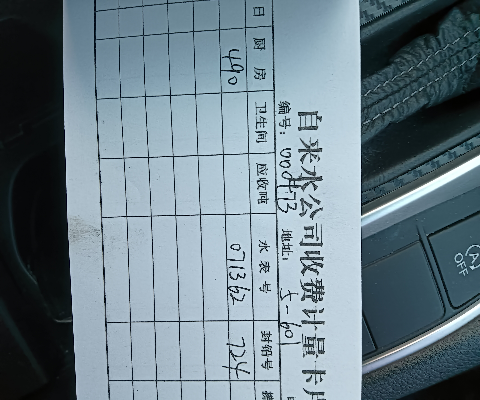 自来水公司收费计量卡片
编号: 000473 地址: 5-601
日 厨房 卫生间 应收吨 水表号 封铅号
490 071362 724
OFF